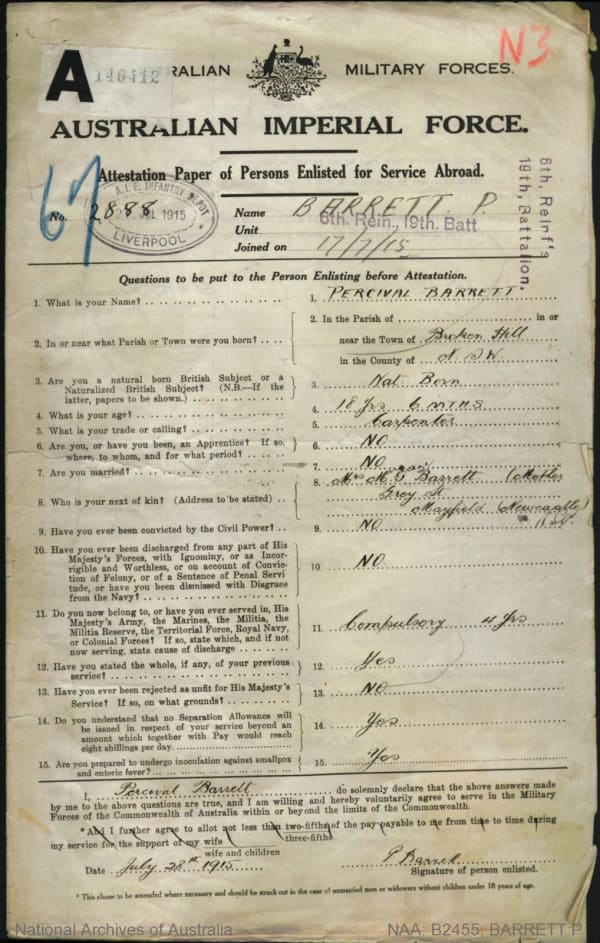 A 140412
AUSTRALIAN MILITARY FORCES.
N3
AUSTRALIAN IMPERIAL FORCE.
Attestation Paper of Persons Enlisted for Service Abroad.
67
No. 2888
A.I.F. INFANTRY DEPOT
1915
LIVERPOOL
Name BARRETT. P.
Unit 6th. Rein., 19th. Batt
Joined on 17/7/15
6th, Reinf's
19th, Battalion.
Questions to be put to the Person Enlisting before Attestation.
1. What is your Name? 1. PERCIVAL BARRETT
2. In or near what Parish or Town were you born? 2. In the Parish of in or
near the Town of Broken Hill
in the County of N S W
3. Are you a natural born British Subject or a
Naturalized British Subject? (N.B.—If the
latter, papers to be shown.) 3. Nat Born
4. What is your age? 4. 18 Yrs 6 MTHS
5. What is your trade or calling? 5. Carpenter
6. Are you, or have you been, an Apprentice? If so,
where, to whom, and for what period? 6. NO
7. Are you married? 7. NO
8. Who is your next of kin? (Address to be stated) 8. Mrs M. Barrett (Mother
Grey St
Mayfield (Newcastle)
9. Have you ever been convicted by the Civil Power? 9. NO
10. Have you ever been discharged from any part of His
Majesty's Forces, with Ignominy, or as Incor-
rigible and Worthless, or on account of Convic-
tion of Felony, or of a Sentence of Penal Servi
tude, or have you been dismissed with Disgrace
from the Navy? 10. NO
11. Do you now belong to, or have you ever served in, His
Majesty's Army, the Marines, the Militia, the
Militia Reserve, the Territorial Force, Royal Navy,
or Colonial Forces? If so, state which, and if not
now serving, state cause of discharge 11 Compulsory 4 Yrs
12. Have you stated the whole, if any, of your previous
service? 12. Yes
13. Have you ever been rejected as unfit for His Majesty's
Service? If so, on what grounds? 13. NO
14. Do you understand that no Separation Allowance will
be issued in respect of your service beyond an
amount which together with Pay would reach
eight shillings per day. 14. Yes
15. Are you prepared to undergo inoculation against smallpox
and enteric fever? 15. Yes
I, Percival Barrett do solemnly declare that the above answers made
by me to the above questions are true, and I am willing and hereby voluntarily agree to serve in the Military
Forces of the Commonwealth of Australia within or beyond the limits of the Commonwealth.
*And I further agree to allot not less than two-fifths of the pay payable to me from time to time during
three-fifths
my service for the support of my wife
wife and children
Date July 28th 1915 P Barrett
Signature of person enlisted.
* This clause to be amended where necessary and should be struck out in the case of unmarried men or widowers without children under 18 years of age.
National Archives of Australia NAA: B2455, BARRETT P